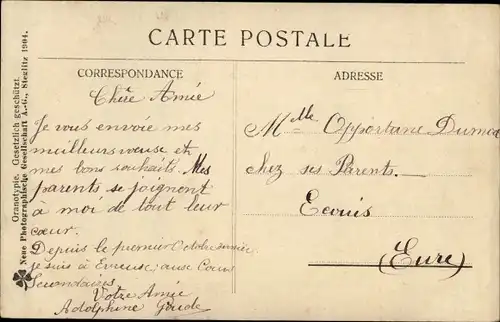 CARTE POSTALE
CORRESPONDANCE
Chère Amie
Je vous envoie mes
meilleurs vœuse et
mes bons souhaits. Mes
parents se joignent
à moi de tout leur
cœur.
Depuis le premier Octobre dernier
je suis à Evreux; aux Cours
Secondaires
Votre Amie
Adolphine
ADRESSE
Mlle Opportune
Chez ses Parents.
Ecouis
(Eure)
Oranotypie. Gesetzlich geschützt.
Neue Photographische Gesellschaft A.-G., Steglitz 1904.